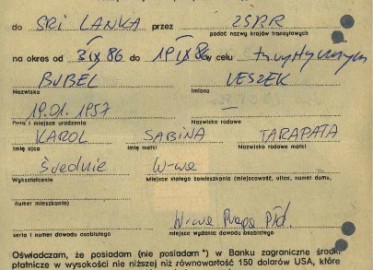 do SRI LANKA przez ZSRR
podać nazwy krajów tranzytowych
na okres od 3 IX 86 do 19 IX 86 w celu turystycznym
BUBEL LESZEK
Nazwisko Imiona
19.01.1957 —
Data i miejsce urodzenia Nazwisko rodowe
KAROL SABINA TARAPATA
Imię ojca Imię matki Nazwisko rodowe matki
Średnie W-wa
Wykształcenie Miejsce stałego zamieszkania (miejscowość, ulica, numer domu,
numer mieszkania)
W-wa Praga Płd.
seria i numer dowodu osobistego miejsce wydania dowodu osobistego
Oświadczam, że posiadam (nie posiadam *) w Banku zagraniczne środki
płatnicze w wysokości nie niższej niż równowartość 150 dolarów USA, które